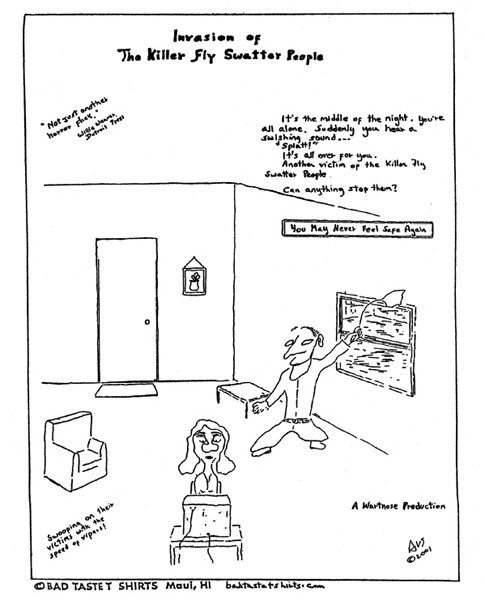 Invasion of
The Killer Fly Swatter People
"Not just another
horror flick."
Willie Weaver,
Detroit Press
It's the middle of the night. You're
all alone. Suddenly you hear a
swishing sound...
"Splatt!"
It's all over for you.
Another victim of the Killer Fly
Swatter People.
Can anything stop them?
You May Never Feel Safe Again
Swooping on their
victims with the
speed of vipers!
A Wartnose Production
©2001
© BAD TASTE T SHIRTS Maui, HI badtastetshirts.com